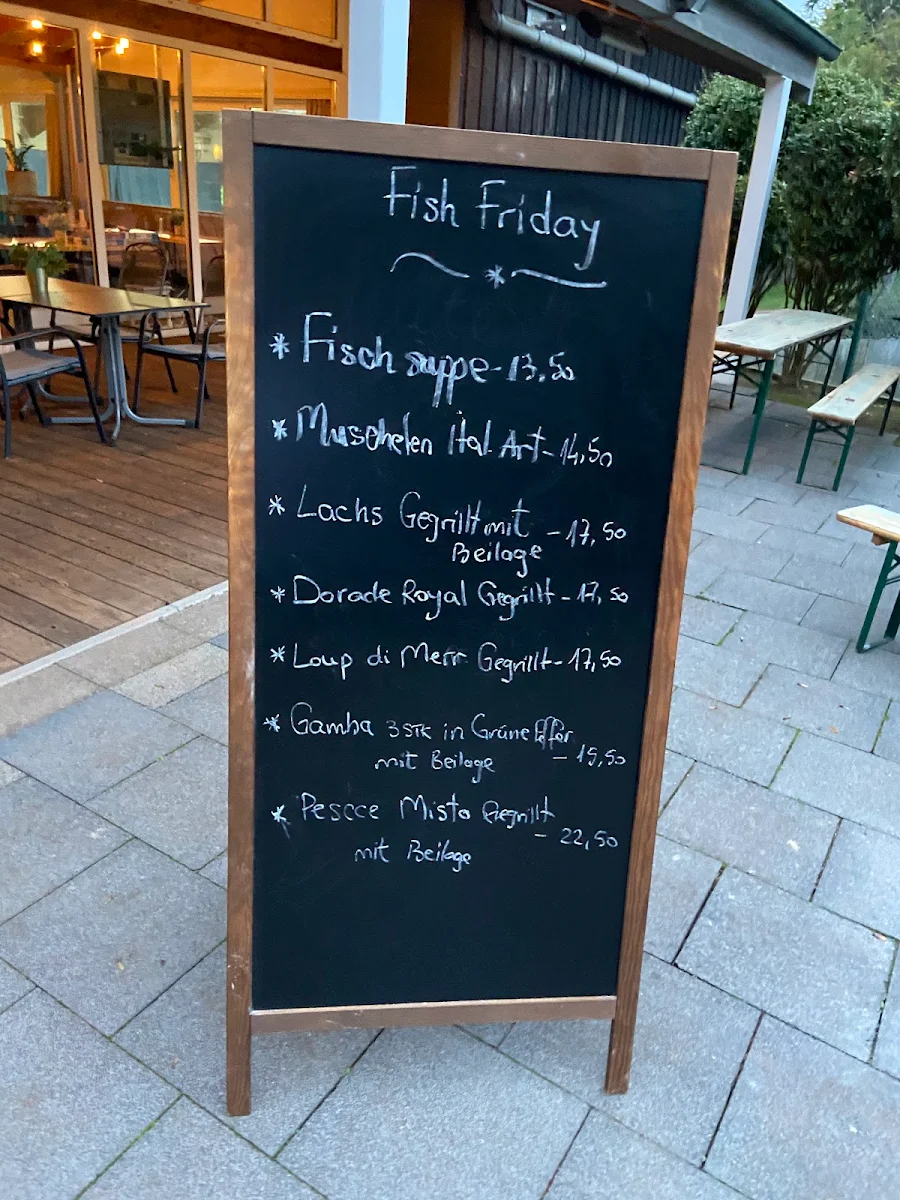 Fish Friday
* Fisch suppe - 13,50
* Muschelen Ital. Art - 14,50
* Lachs Gegrillt mit - 17,50
Beilage
* Dorade Royal Gegrillt - 17,50
* Loup di Merr Gegrillt - 17,50
* Gamba 3 STK in Grüne
mit Beilage - 15,50
* Pescce Misto Gegrillt
- 22,50
mit Beilage